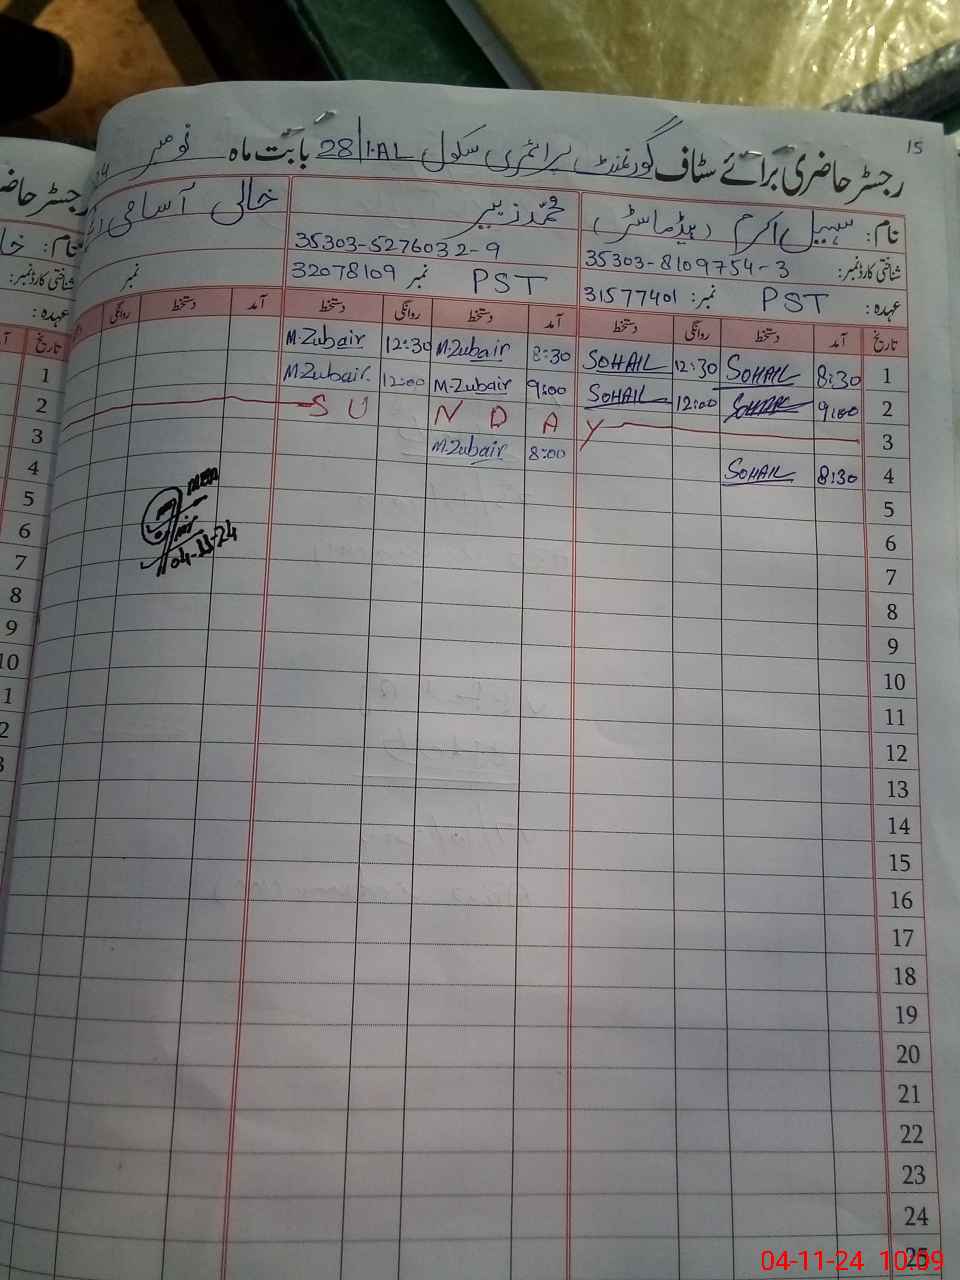 15
رجسٹر حاضری برائے سٹاف گورنمنٹ پرائمری سکول 28/1.AL بابت ماہ نومبر
نام: سہیل اکرم (ہیڈ ماسٹر) محمد زبیر خالی آسامی
شناختی کارڈ نمبر: 35303-8109754-3 35303-5276032-9
عہدہ: PST نمبر: 31577401 PST نمبر 32078109 نمبر
تاریخ آمد دستخط روانگی دستخط آمد دستخط روانگی دستخط آمد دستخط روانگی
1 8:30 SOHAIL 12:30 SOHAIL 8:30 M.Zubair 12:30 M.Zubair
2 9:00 SOHAIL 12:00 SOHAIL 9:00 M.Zubair 12:00 M.Zubair
3 S U N D A Y
4 8:30 SOHAIL 8:00 M.Zubair
5
6
7
8
9
10
11
12
13
14
15
16
17
18
19
20
21
22
23
24
25
04-11-24
رجسٹر
نام:
شناختی کارڈ نمبر:
عہدہ:
تاریخ
1
2
3
4
5
6
7
8
9
10
04-11-24 10:09